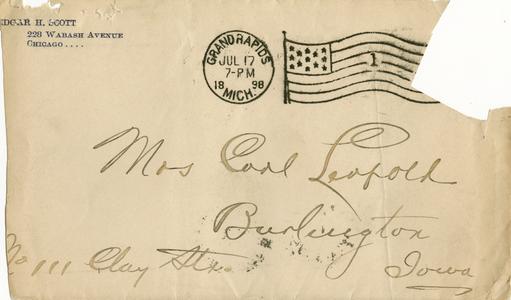 EDGAR H. SCOTT
228 WABASH AVENUE
CHICAGO....
GRAND RAPIDS
JUL 17
7-PM
18 98
MICH.
1
Mrs Carl Leopold
Burlington
No 111 Clay Str. Iowa